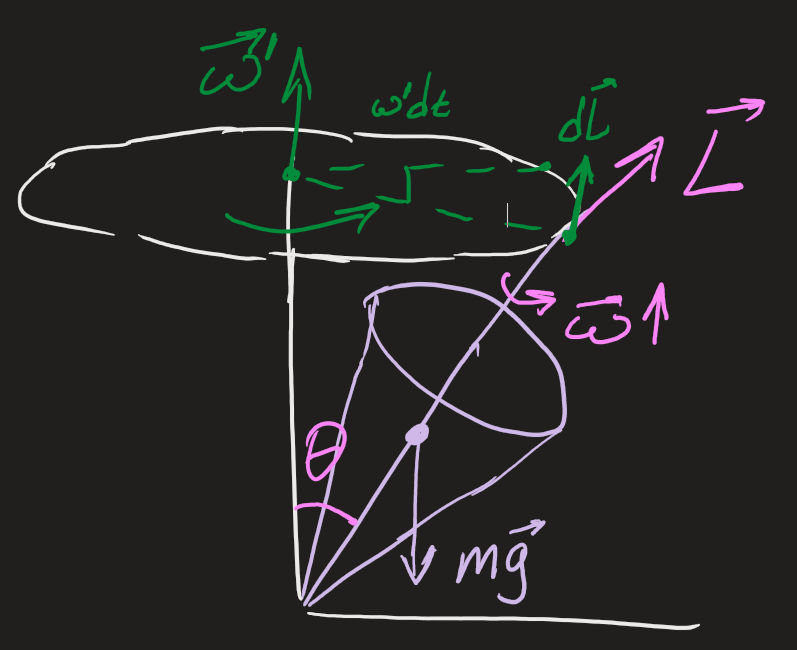 ω⃗'
ω'dt
dL⃗
L⃗
ω⃗ ↑
θ
mg⃗